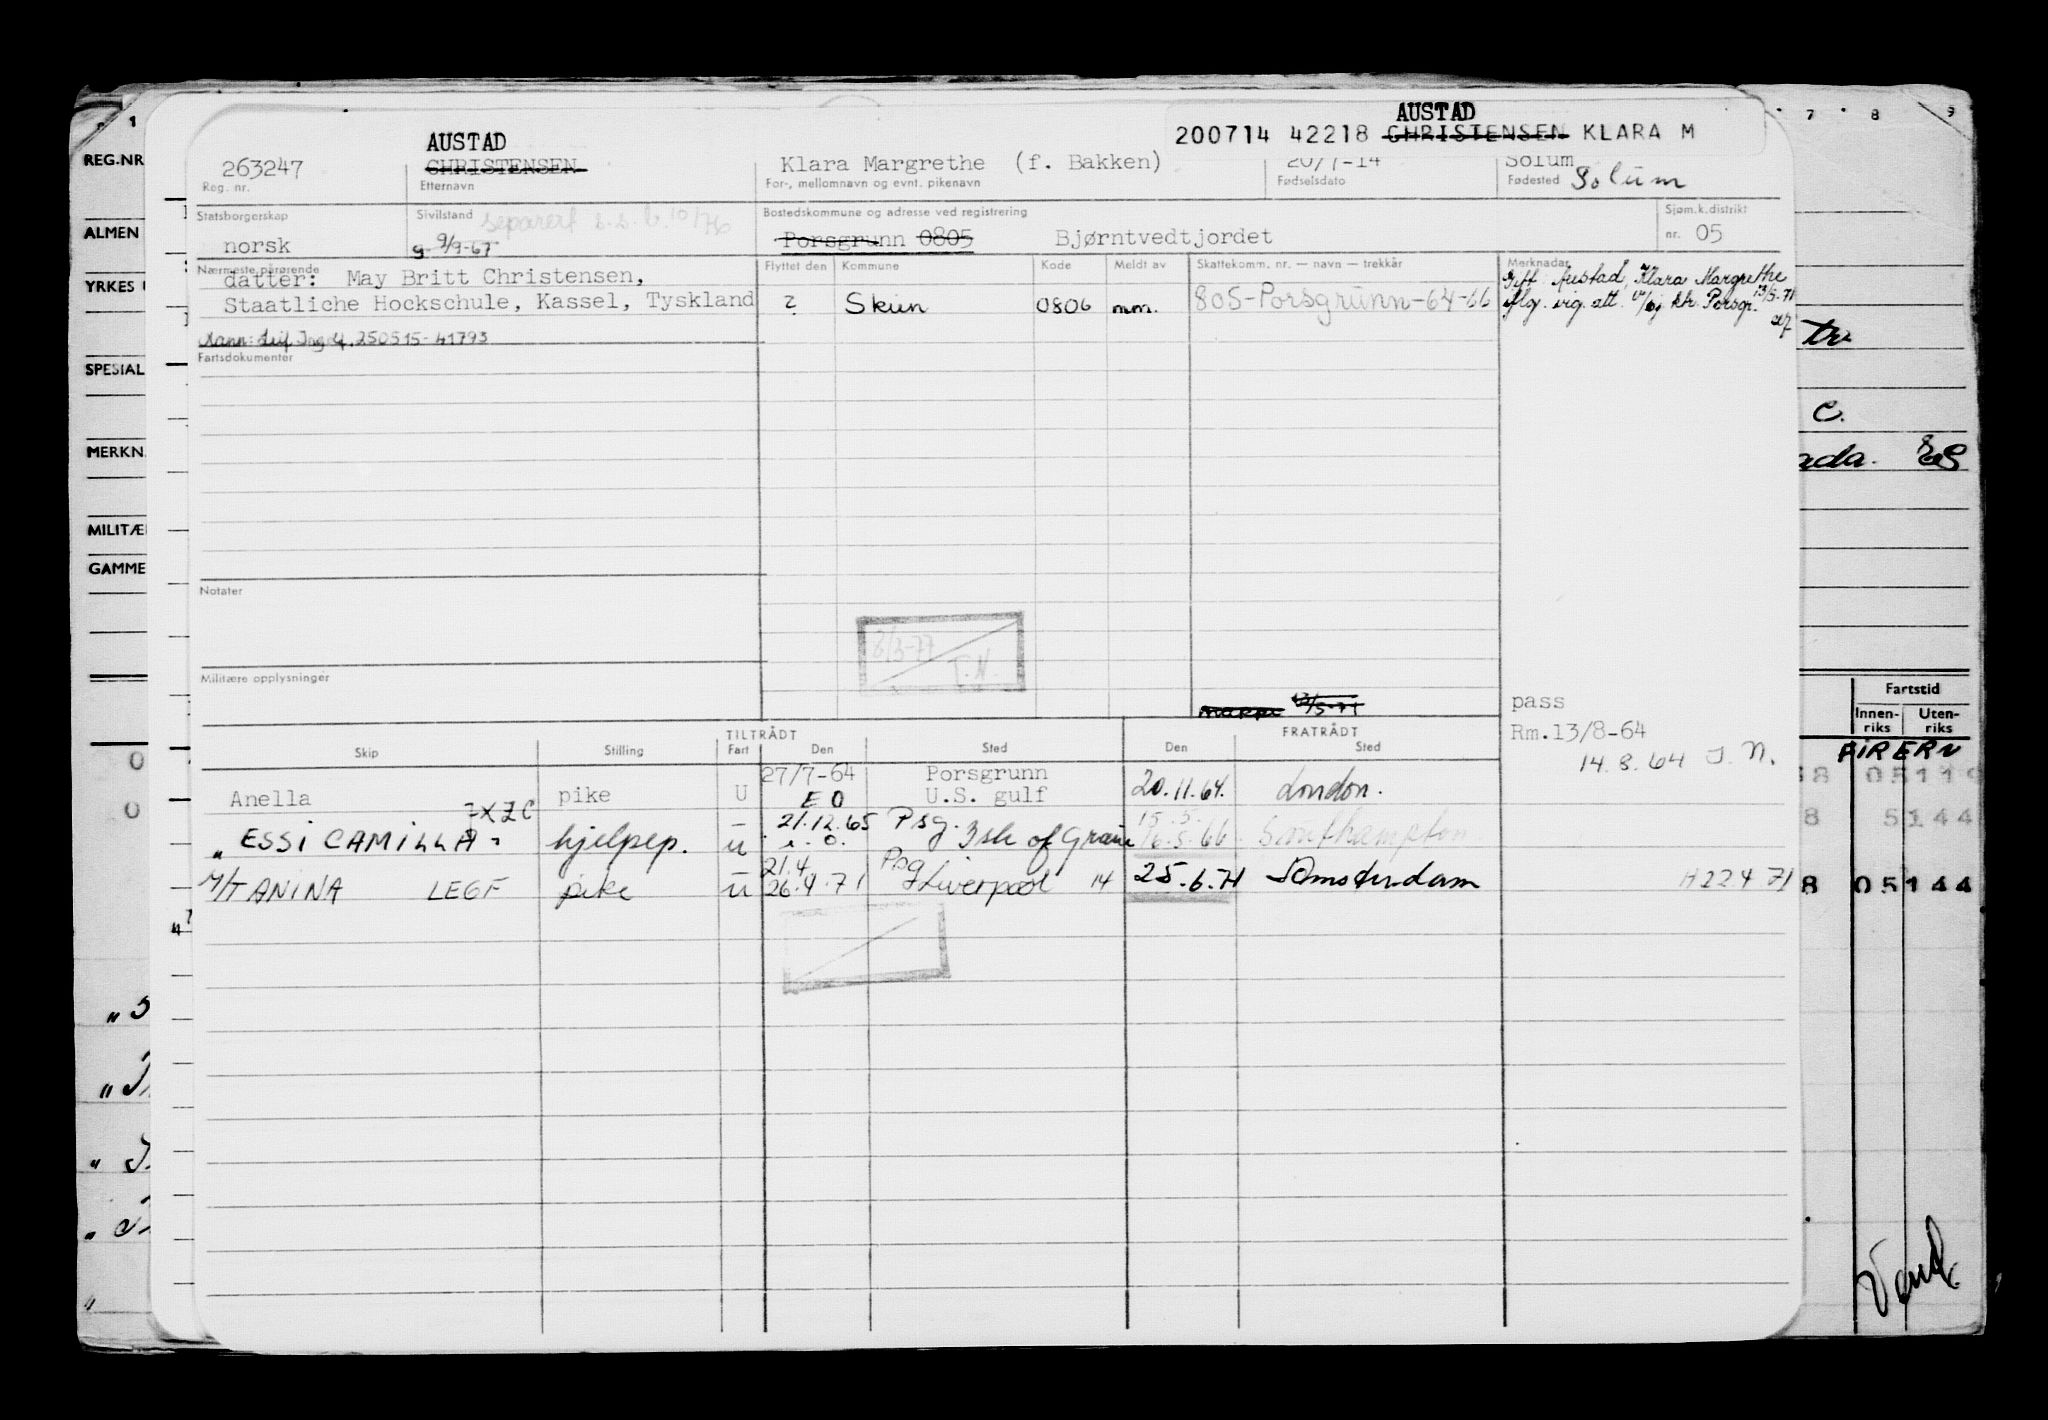 AUSTAD
200714 42218 CHRISTENSEN KLARA M
AUSTAD
263247 CHRISTENSEN Klara Margrethe (f. Bakken) 20/7-14 Solum
Reg. nr. Etternavn For-, mellomnavn og evnt. pikenavn Fødselsdato Fødested Solum
Statsborgerskap Sivilstand separert s.s.b. 10/76 Bostedskommune og adresse ved registrering Sjøm.k.distrikt
norsk g 9/9-67 Porsgrunn 0805 Bjørntvedtjordet nr. 05
Nærmeste pårørende Flyttet den Kommune Kode Meldt av Skattekomm. nr. — navn — trekkår Merknader
datter: May Britt Christensen, Gift Austad, Klara Margrethe
Staatliche Hockschule, Kassel, Tyskland ? Skien 0806 mm. 805-Porsgrunn-64-66 iflg. vig. att. kh. Porsgr. 13/5-71
Mann: Leif Ingolf, 250515-41793
Fartsdokumenter
Notater
8/3-77
T.N.
Militære opplysninger
pass
Rm.13/8-64
14.8.64 T.N.
TILTRÅDT FRATRÅDT
Skip Stilling Fart Den Sted Den Sted
27/7-64 Porsgrunn
Anella pike U E O U.S. gulf 20.11.64. London.
7XZC 21.12.65 Psg. 15.5.
" ESSI CAMILLA hjelpep. U Isle of Grain 16.5.66. Southampton
21.4. Psg
M/T ANINA LEGF pike U 26.4.71 Liverpool 14 25.6.71 Amsterdam H 22 4 71
1 7 8 9
REG.NR
ALMEN
YRKES
SPESIAL
MERKN.
MILITÆ
GAMME
tr.
C.
ada. ES
Fartstid
Innen-
riks Uten-
riks
FIRERN
68 05119
8 5144
8 05144
0
0
Vend